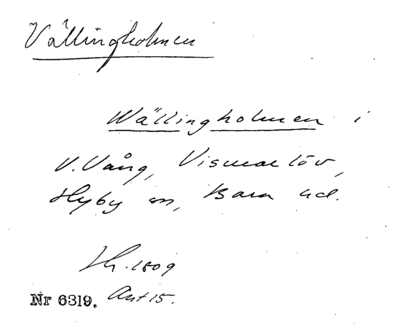 Vällingholmen
Wällingholmen i
V. Vång, Vismarlöv,
Hyby sn, Bara hd.
Sk. 1809
Nr 6319. Ant 15.